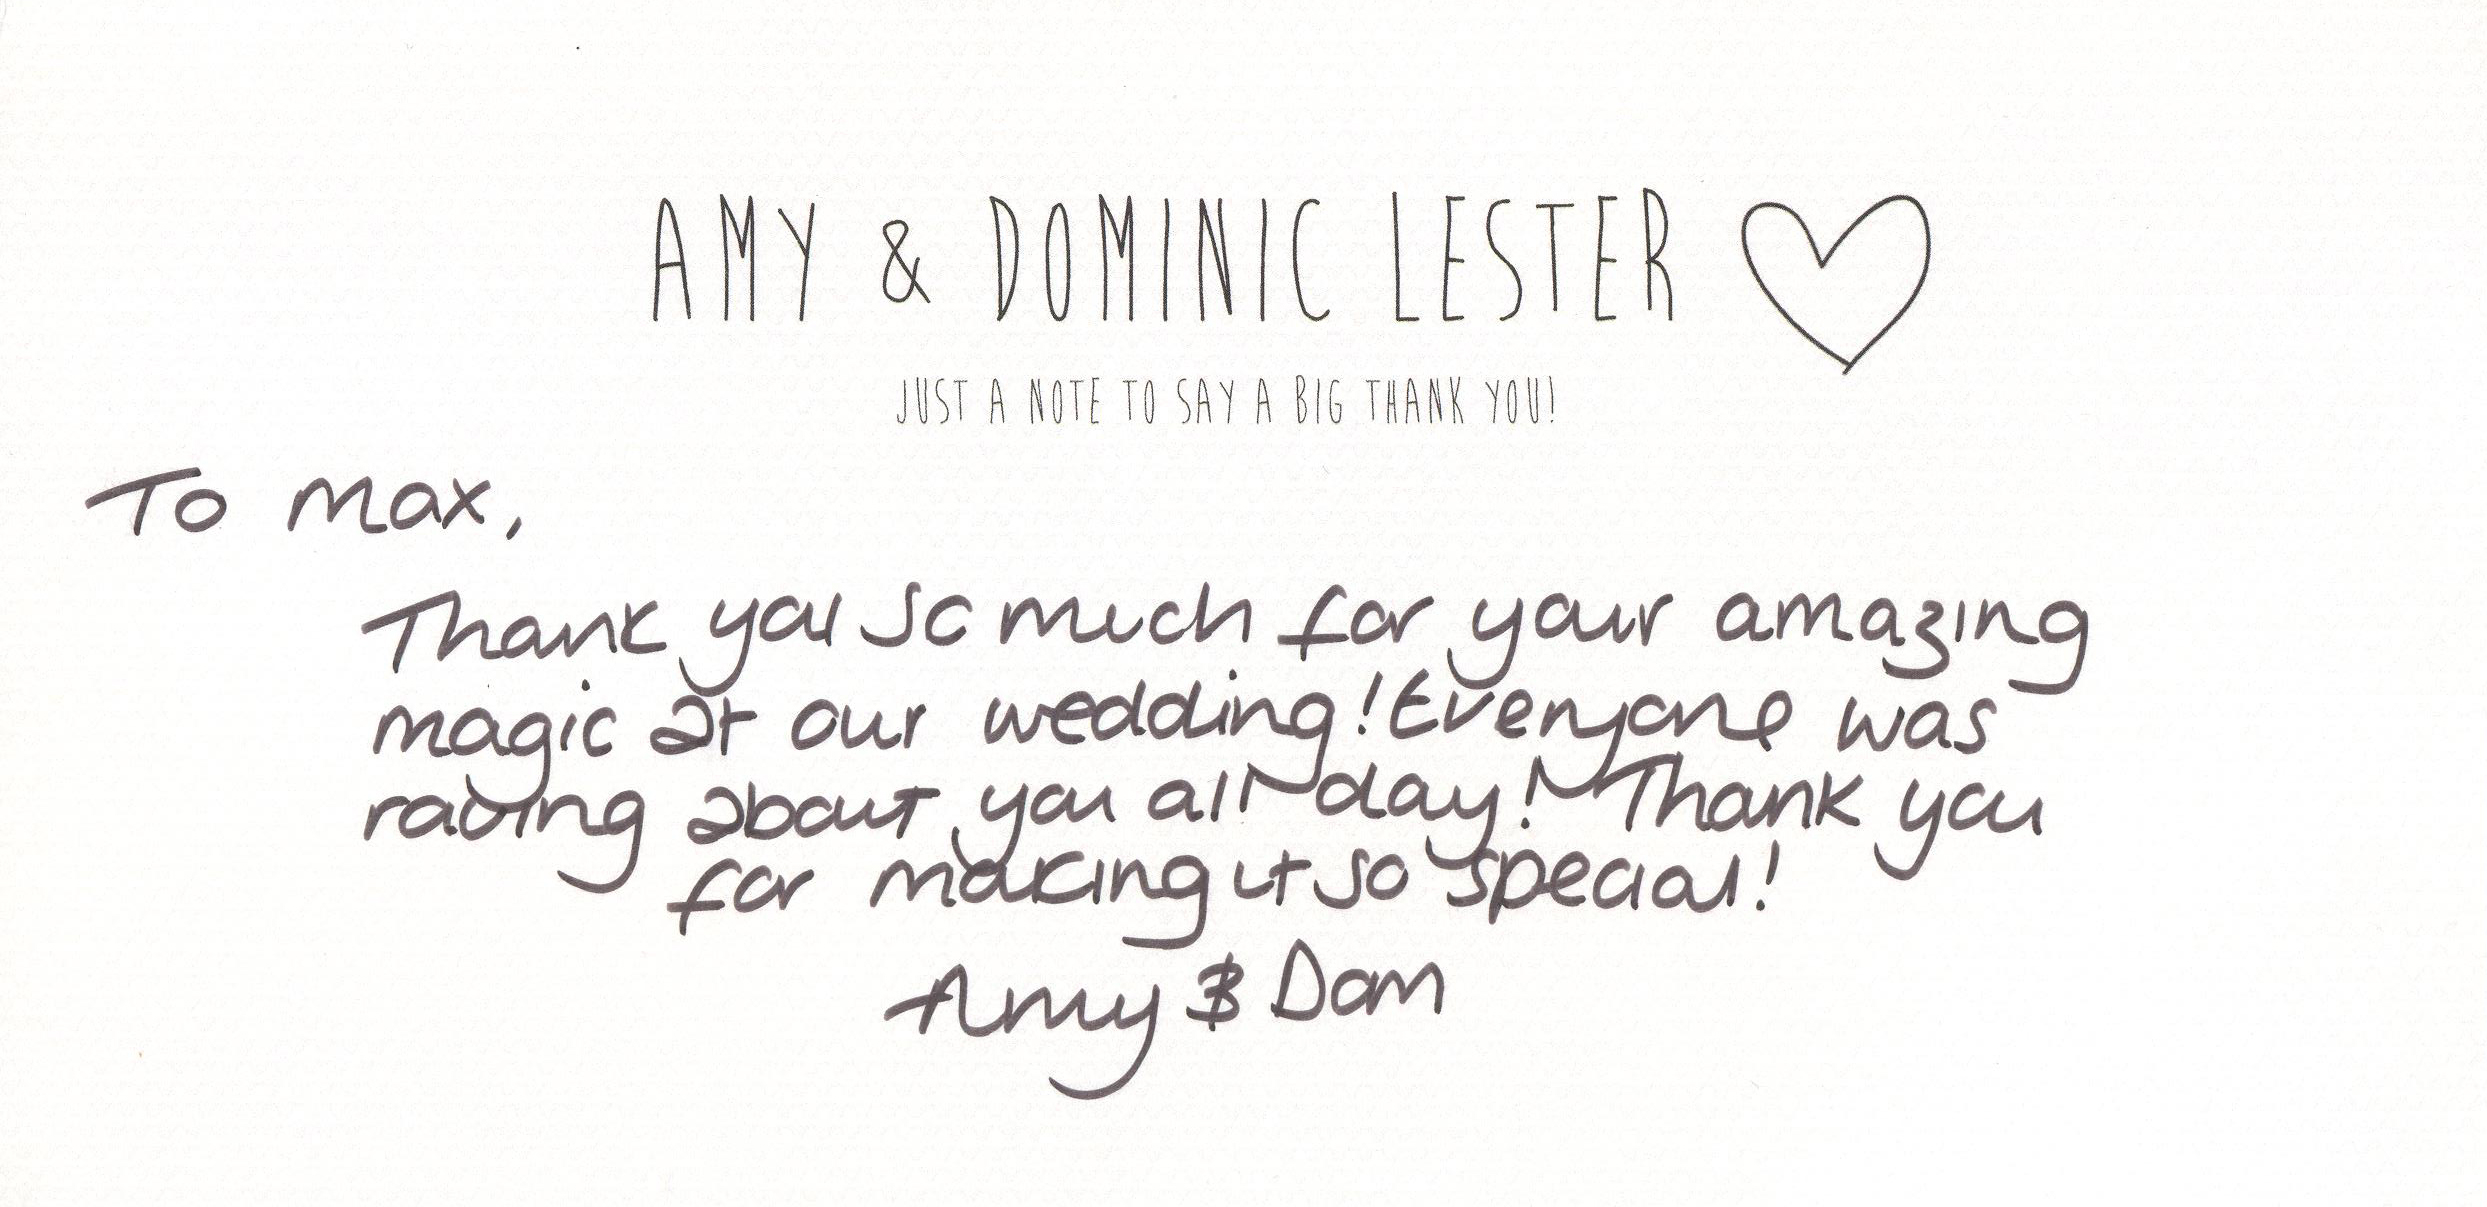 AMY & DOMINIC LESTER
JUST A NOTE TO SAY A BIG THANK YOU!
To Max,
Thank you so much for your amazing
magic at our wedding! Everyone was
raving about you all day! Thank you
for making it so special!
Amy & Dom